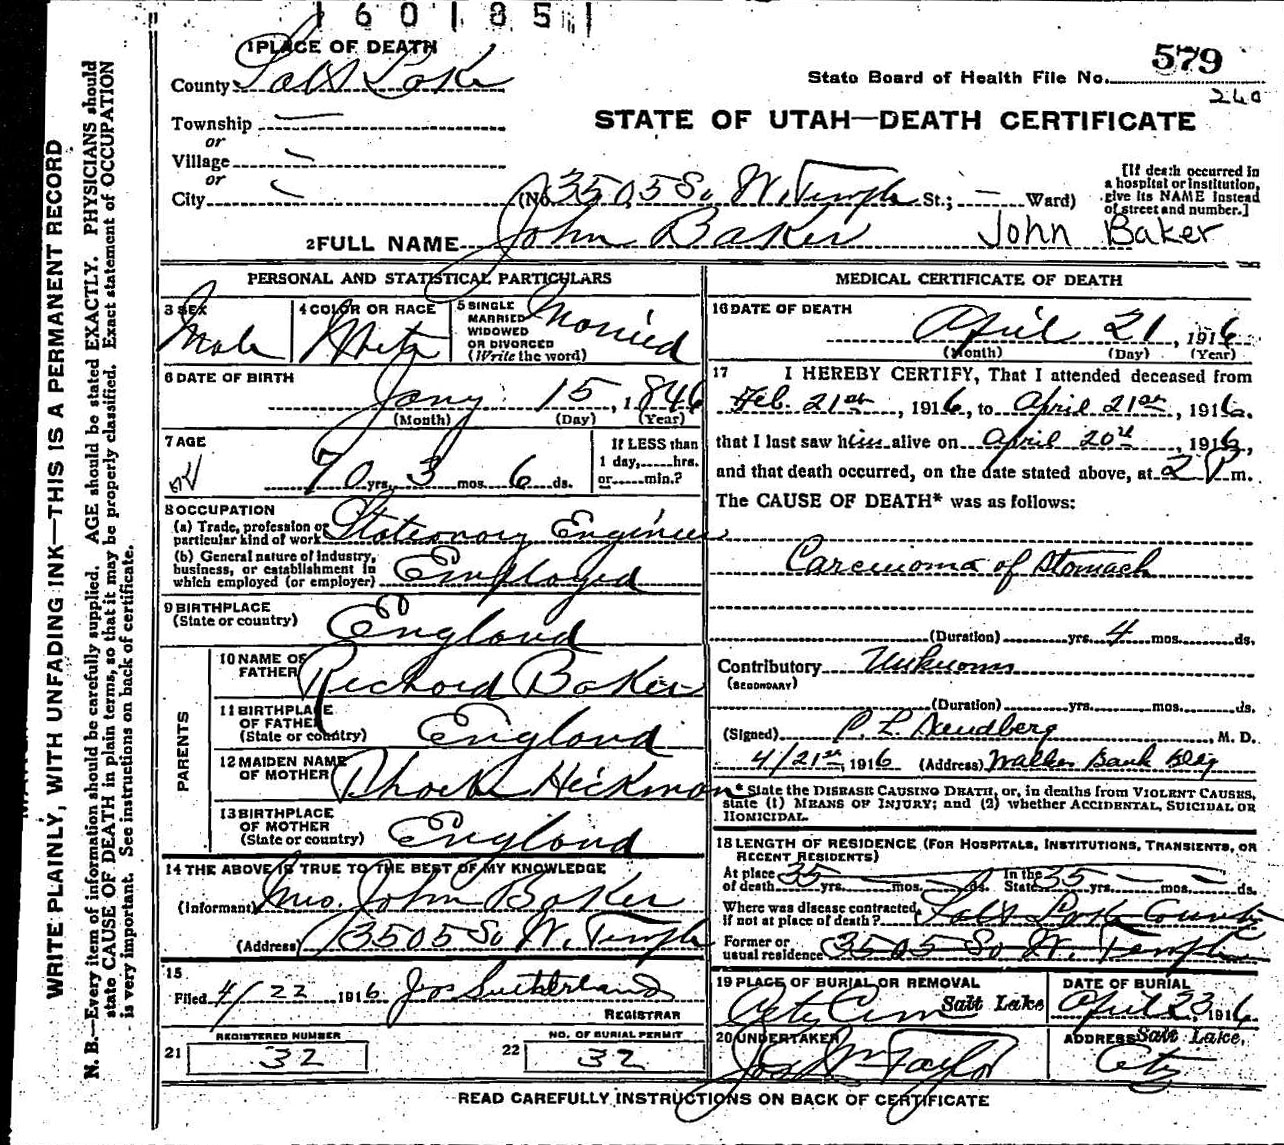 160185
1 PLACE OF DEATH
579
County Salt Lake
State Board of Health File No.
260
Township —
STATE OF UTAH—DEATH CERTIFICATE
or
Village
or
City
(No. 3505 So W. Temple St.; — Ward)
[If death occurred in
a hospital or institution,
give its NAME instead
of street and number.]
2 FULL NAME John Baker John Baker
PERSONAL AND STATISTICAL PARTICULARS
3 SEX
Male
4 COLOR OR RACE
White
5 SINGLE
MARRIED
WIDOWED
OR DIVORCED
(Write the word)
Married
6 DATE OF BIRTH
Jany 15, 1846
(Month) (Day) (Year)
7 AGE
70 yrs. 3 mos. 6 ds.
If LESS than
1 day,......hrs.
or......min.?
8 OCCUPATION
(a) Trade, profession or
particular kind of work Stationary Engineer
(b) General nature of industry,
business, or establishment in
which employed (or employer) Employed
9 BIRTHPLACE
(State or country) England
PARENTS
10 NAME OF
FATHER Richard Baker
11 BIRTHPLACE
OF FATHER
(State or country) England
12 MAIDEN NAME
OF MOTHER Phoebe Hickman
13 BIRTHPLACE
OF MOTHER
(State or country) England
14 THE ABOVE IS TRUE TO THE BEST OF MY KNOWLEDGE
(Informant) Mrs. John Baker
(Address) 3505 So W. Temple
15
Filed 4/22 1916 Jos Sutherland
REGISTRAR
REGISTERED NUMBER
21 32
NO. OF BURIAL PERMIT
22 32
MEDICAL CERTIFICATE OF DEATH
16 DATE OF DEATH
April 21, 1916
(Month) (Day) (Year)
17 I HEREBY CERTIFY, That I attended deceased from
Feb. 21st, 1916, to April 21st, 1916.
that I last saw him alive on April 20th, 1916,
and that death occurred, on the date stated above, at 2 P m.
The CAUSE OF DEATH* was as follows:
Carcinoma of Stomach
(Duration) yrs. 4 mos. ds.
Contributory Unknown
(SECONDARY)
(Duration) yrs. mos. ds.
(Signed) , M. D.
4/21st, 1916 (Address) Walker Bank Bldg
* State the DISEASE CAUSING DEATH, or, in deaths from VIOLENT CAUSES,
state (1) MEANS OF INJURY; and (2) whether ACCIDENTAL, SUICIDAL OR
HOMICIDAL.
18 LENGTH OF RESIDENCE (FOR HOSPITALS, INSTITUTIONS, TRANSIENTS, OR
RECENT RESIDENTS)
At place
of death 35 yrs. — mos. — ds. In the
State 35 yrs. — mos. — ds.
Where was disease contracted,
if not at place of death? Salt Lake County
Former or
usual residence 3505 So W. Temple
19 PLACE OF BURIAL OR REMOVAL
City Cem Salt Lake
DATE OF BURIAL
April 23, 1916
20 UNDERTAKER
Jos Wm Taylor
ADDRESS Salt Lake,
City
READ CAREFULLY INSTRUCTIONS ON BACK OF CERTIFICATE
WRITE PLAINLY, WITH UNFADING INK—THIS IS A PERMANENT RECORD
N. B.—Every item of information should be carefully supplied. AGE should be stated EXACTLY. PHYSICIANS should
state CAUSE OF DEATH in plain terms, so that it may be properly classified. Exact statement of OCCUPATION
is very important. See instructions on back of certificate.